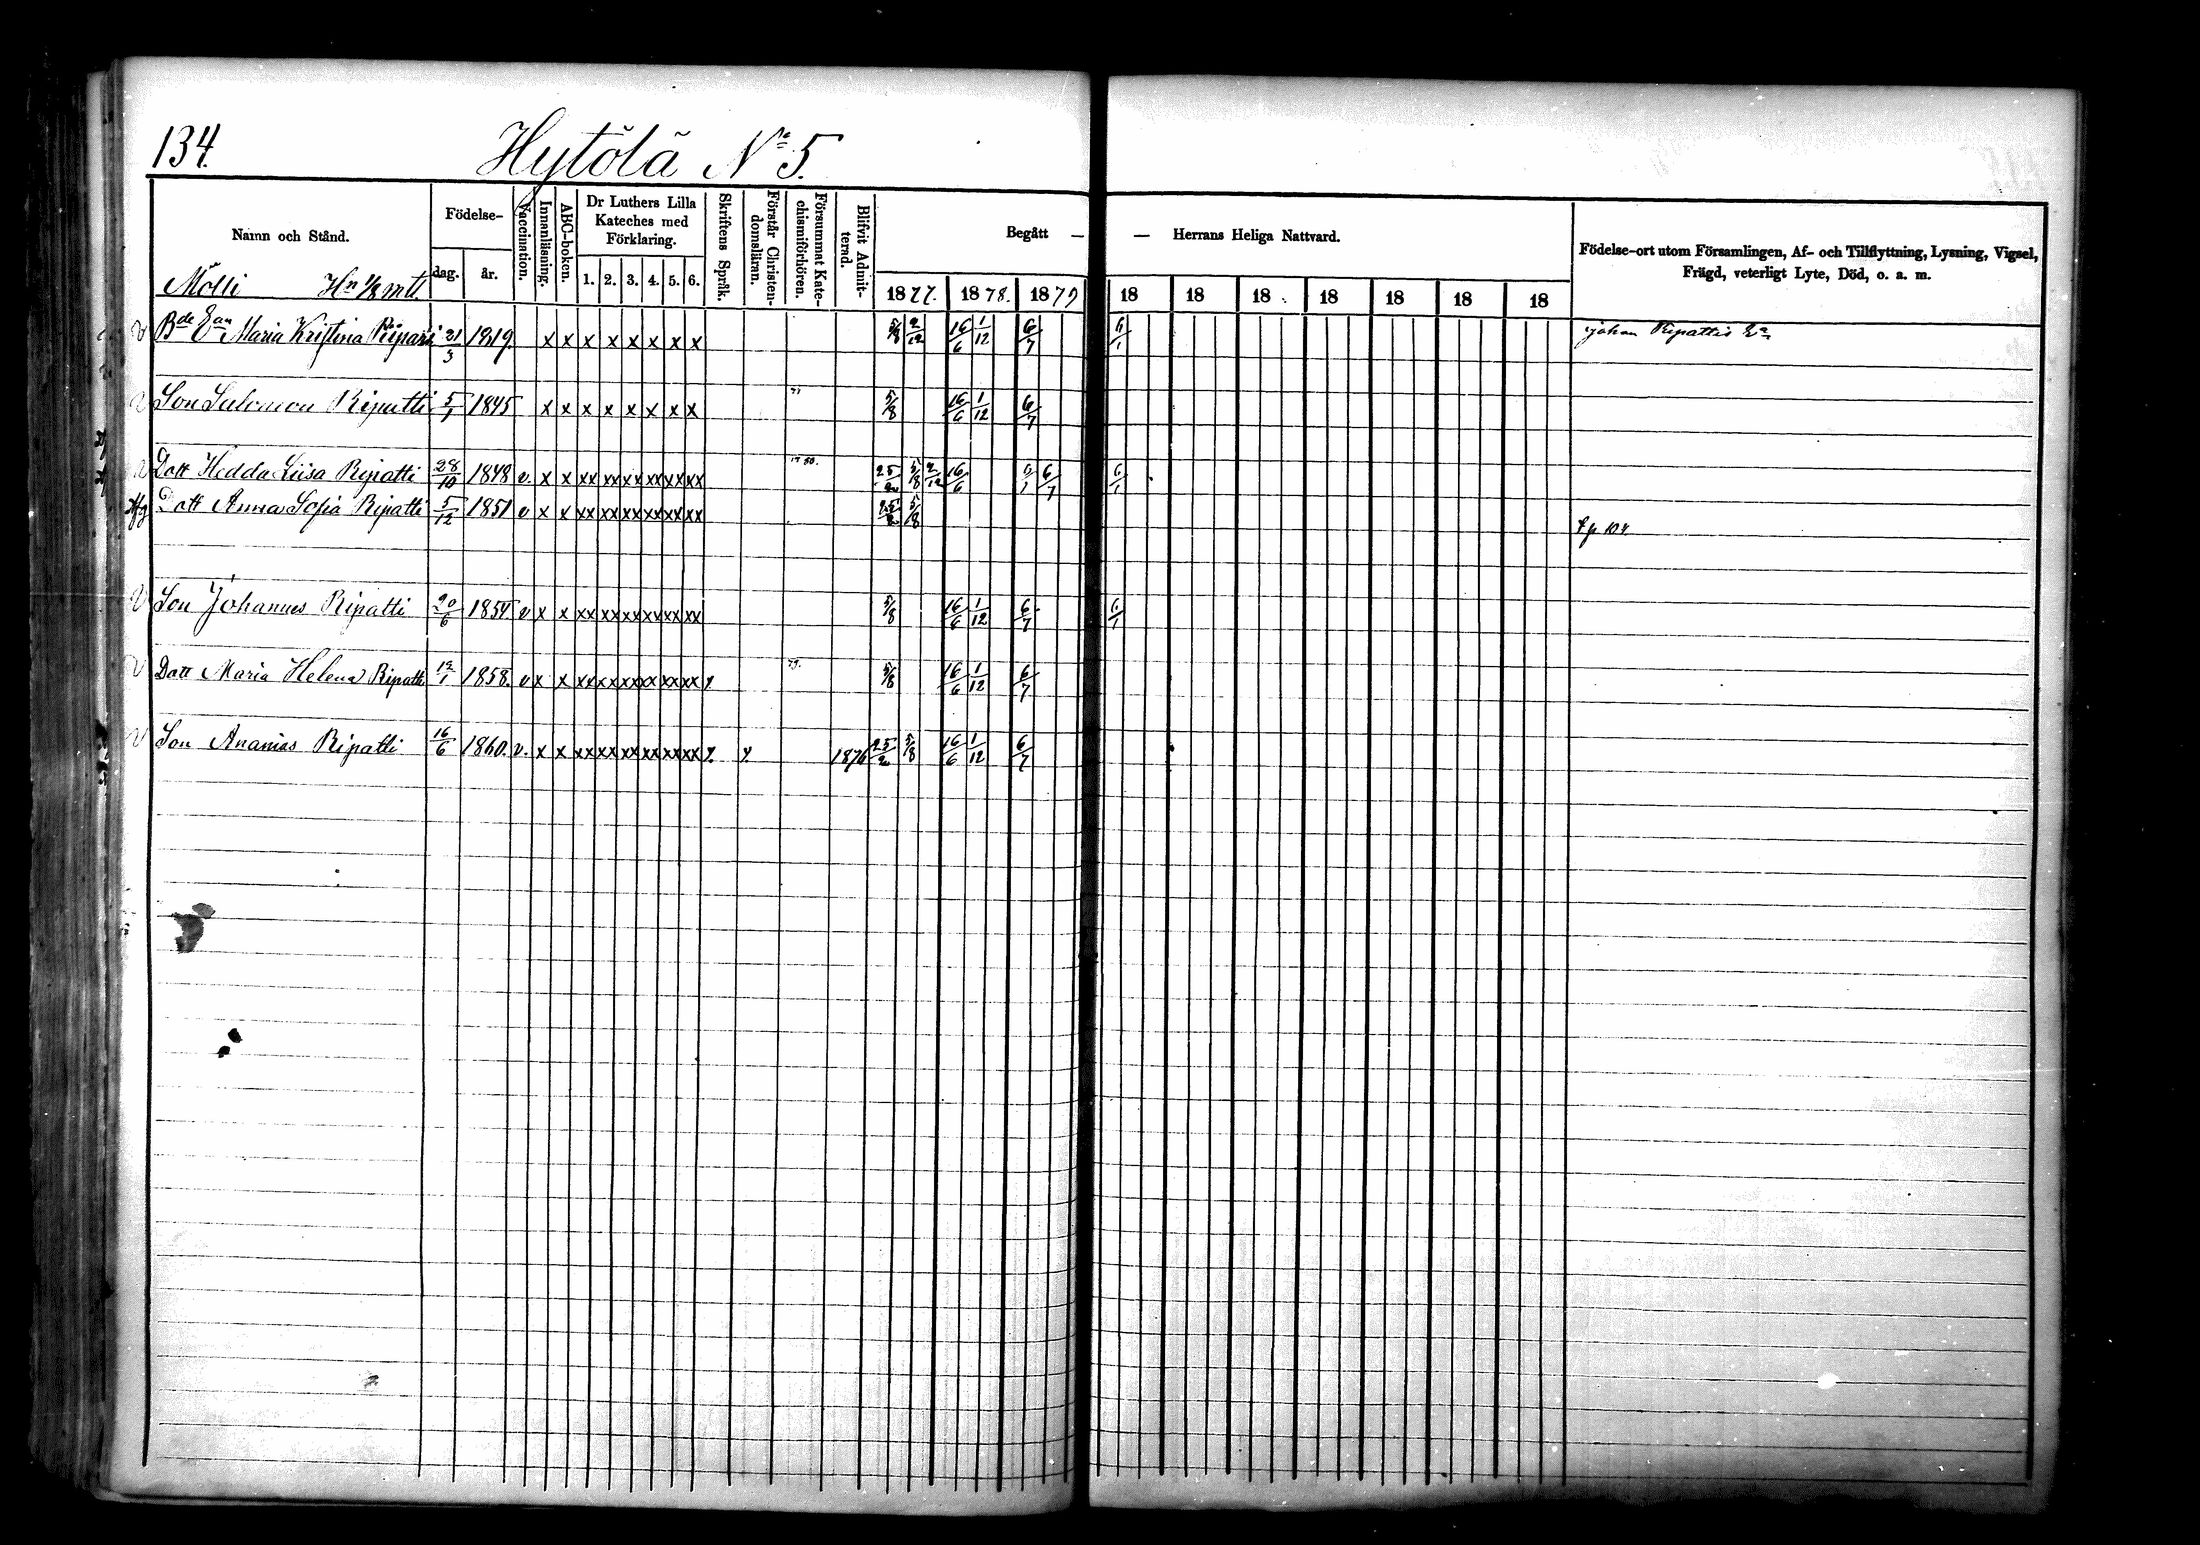 134.
Hytölä No 5.
Namn och Stånd.
Födelse-
dag.
år.
Vaccination.
Innanläsning.
ABC-boken.
Dr Luthers Lilla Kateches med Förklaring.
1. 2. 3. 4. 5. 6.
Skriftens Språk.
Förstår Christendomsläran.
Försummat Katechismiförhören.
Blifvit Admitterad.
Begått — — Herrans Heliga Nattvard.
1877. 1878. 1879 18 18 18 18 18 18 18
Födelse-ort utom Församlingen, Af- och Tillflyttning, Lysning, Vigsel, Frägd, veterligt Lyte, Död, o. a. m.
Mölli Hn 1/8 mtl.
Bde Ean Maria Kristina Ripatti 21/3 1819. x x x x x x x x 5/8 2/12 16/6 1/12 6/7 6/1 Johan Ripattis Ea
v Son Salomon Ripatti 5/1 1845 x x x x x x x x 5/8 16/6 1/12 6/7
Dott Hedda Liisa Ripatti 28/10 1848 v. x x xx xx xx xx xx xx 25/2 5/8 2/12 16/6 6/1 6/7 6/1
Afg Dott Anna Sofia Ripatti 5/12 1851 v x x xx xx xx xx xx xx 25/2 5/8 fp 104.
v Son Johannes Ripatti 20/6 1854. v x x xx xx xx xx xx xx 5/8 16/6 1/12 6/7 6/1
v Dott Maria Helena Ripatti 12/1 1858. v x x xx xx xx xx xx xx x 79. 5/8 16/6 1/12 6/7
v Son Ananias Ripatti 16/6 1860. v. x x xx xx xx xx xx xx x x 1876 25/2 5/8 16/6 1/12 6/7